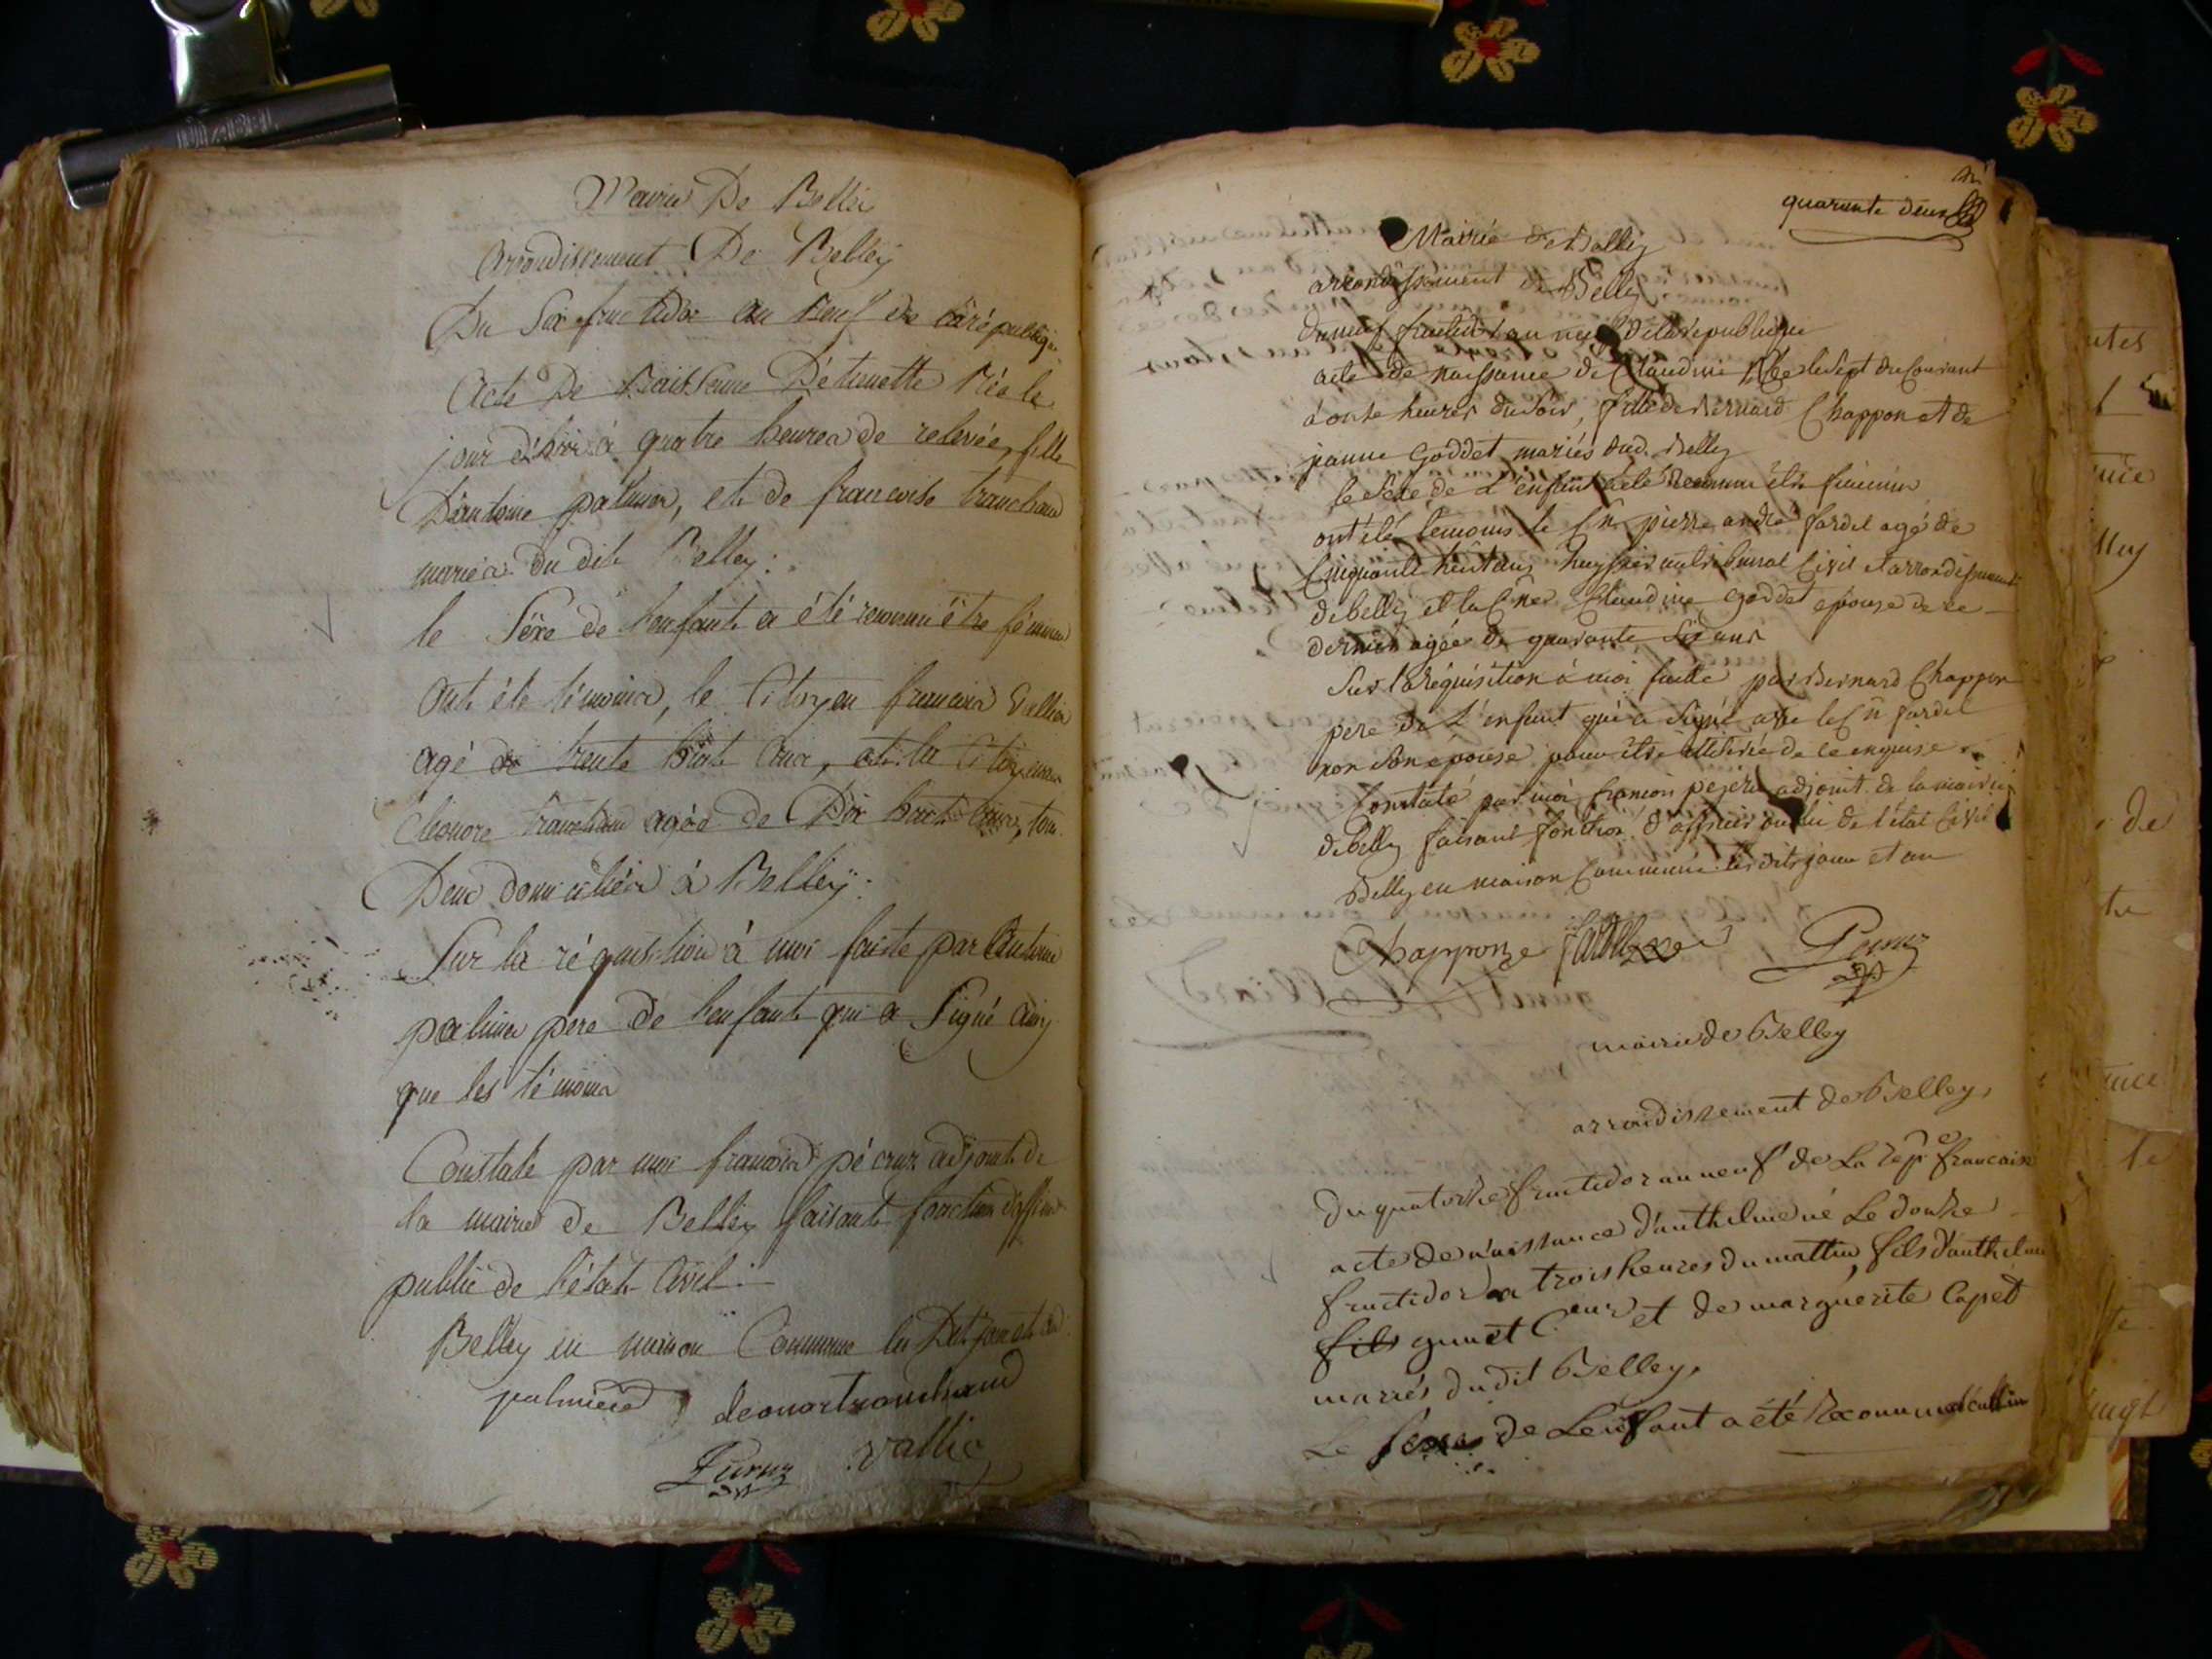 Mairie De Belley
Arrondissement De Belley
Du Six fructidor an neuf de la république
Acte De Naissance D'étiennette Née le
jour d'hier à quatre heures de relevée, fille
D'antoine palmier, et de francoise tranchand
mariés du dit Belley:
le Séxe de l'enfant a été reconnu être féminin
Ont été témoins, le Citoyen francois Vallin
agé de trente huit ans, et la Citoyenne
Eleonore tranchand agée de Dix huit ans, tous
Deux domiciliés à Belley:
Sur la réquisition à moi faite par Antoine
palmier pere de l'enfant qui a Signé ainsy
que les témoins
Constaté par moi francois pécruz adjoint de
la mairie de Belley faisant fonction d'officier
public de l'état Civil
Belley en maison Commune les Dit jour et an
palmier leonortranchand
vallin
quarente deux
Mairie de Belley
arrondissement de Belley
du neuf fructidor an neuf de la république
acte de naissance de Claudine Née le Sept du Courant
à onze heures du Soir, fille de Bernard Chappon et de
jeanne Goddet mariés dud. Belley
le Séxe de L'enfant a été Reconnu être féminin
ont été temoins le Cn. pierre andré fardel agé de
Cinquante huit ans huissier au tribunal Civil d'arrondissement
de belley et la Cne. Claudine goddet epouse de ce
dernier agée de quarante Six ans
Sur la réquisition à moi faitte par Bernard Chappon
pere de L'enfant qui a Signé avec le Cn fardel
non Son epouse pour être illitérée de ce enquise
Constaté par moi francois adjoint de la mairie
de belley faisant fonction d'officier public de l'état Civil
Belley en maison Commune les dits jour et an
Chappon fardel
mairie de Belley
arrondissement de Belley,
du quatorze fructidor an neuf de La repe. francaise
acte de naissance d'anthelme né Le douze
fructidor a trois heures du mattin, fils d'anthelme
fils gunet et de marguerite Capet
mariés du dit Belley,
Le sexe de Lenfant a été Reconnu masculin